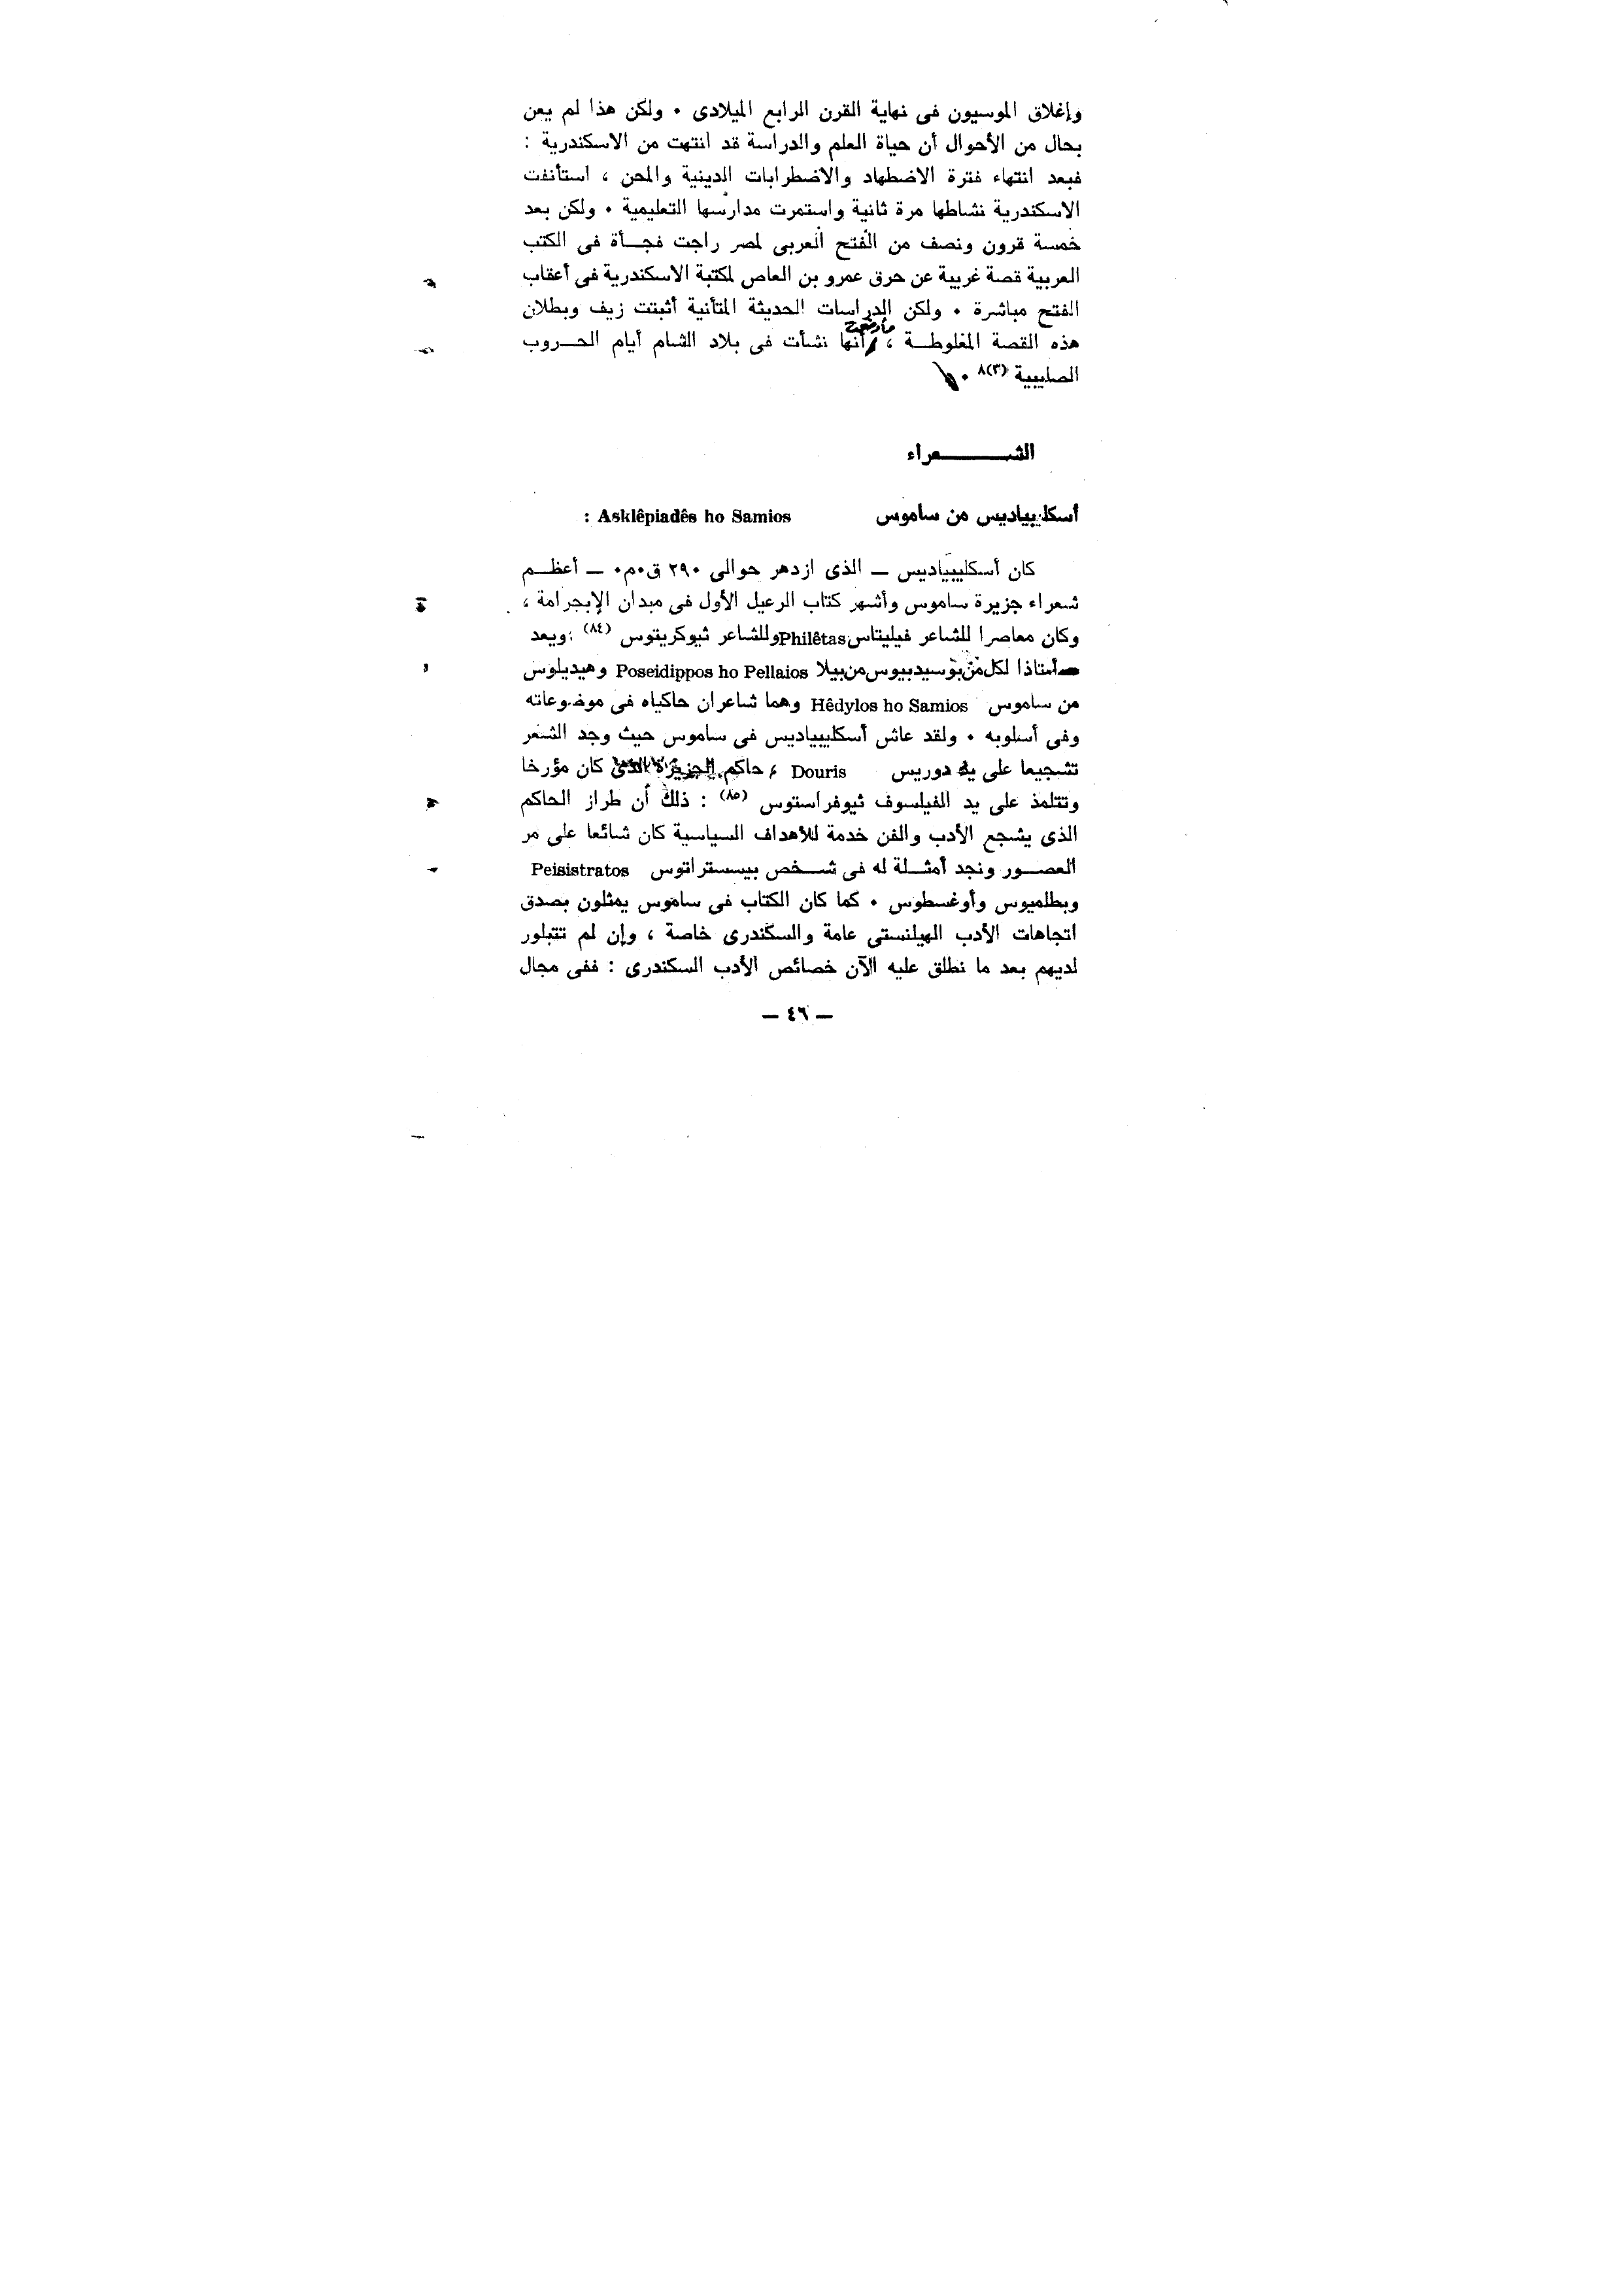 وإغلاق الموسيون فى نهاية القرن الرابع الميلادى ٠ ولكن هذا لم يعن
بحال من الأحوال أن حياة العلم والدراسة قد انتهت من الاسكندرية :
فبعد انتهاء فترة الاضطهاد والاضطرابات الدينية والمحن ، استأنفت
الاسكندرية نشاطها مرة ثانية واستمرت مدارسها التعليمية ٠ ولكن بعد
خمسة قرون ونصف من الفتح العربى لمصر راجت فجـــأة فى الكتب
العربية قصة غريبة عن حرق عمرو بن العاص لمكتبة الاسكندرية فى أعقاب
الفتح مباشرة ٠ ولكن الدراسات الحديثة المتأنية أثبتت زيف وبطلان
هذه القصة المغلوطــة ، أنها نشأت فى بلاد الشام أيام الحـــروب
الصليبية ٨(٣) ٠
الشـــــــــعراء
أسكليبياديس من ساموس Asklêpiadês ho Samios :
كان أسكليبياديس ــ الذى ازدهر حوالى ٢٩٠ ق٠م٠ ــ أعظــم
شعراء جزيرة ساموس وأشهر كتاب الرعيل الأول فى ميدان الإبجرامة ،
وكان معاصرا للشاعر فيليتاس Philêtas وللشاعر ثيوكريتوس (٨٤) ؛ ويعد
أستاذا لكل من بوسيدبيوس من بيلا Poseidippos ho Pellaios وهيديلوس
من ساموس Hêdylos ho Samios وهما شاعران حاكياه فى موضوعاته
وفى أسلوبه ٠ ولقد عاش أسكليبياديس فى ساموس حيث وجد الشعر
تشجيعا على يد دوريس Douris ، حاكم الجزيرة الذى كان مؤرخا
وتتلمذ على يد الفيلسوف ثيوفراستوس (٨٥) : ذلك أن طراز الحاكم
الذى يشجع الأدب والفن خدمة للأهداف السياسية كان شائعا على مر
العصــور ونجد أمثــلة له فى شــخص بيسستراتوس Peisistratos
وبطلميوس وأوغسطوس ٠ كما كان الكتاب فى ساموس يمثلون بصدق
اتجاهات الأدب الهيلنستى عامة والسكندرى خاصة ، وإن لم تتبلور
لديهم بعد ما نطلق عليه الآن خصائص الأدب السكندرى : ففى مجال
— ٤٦ —